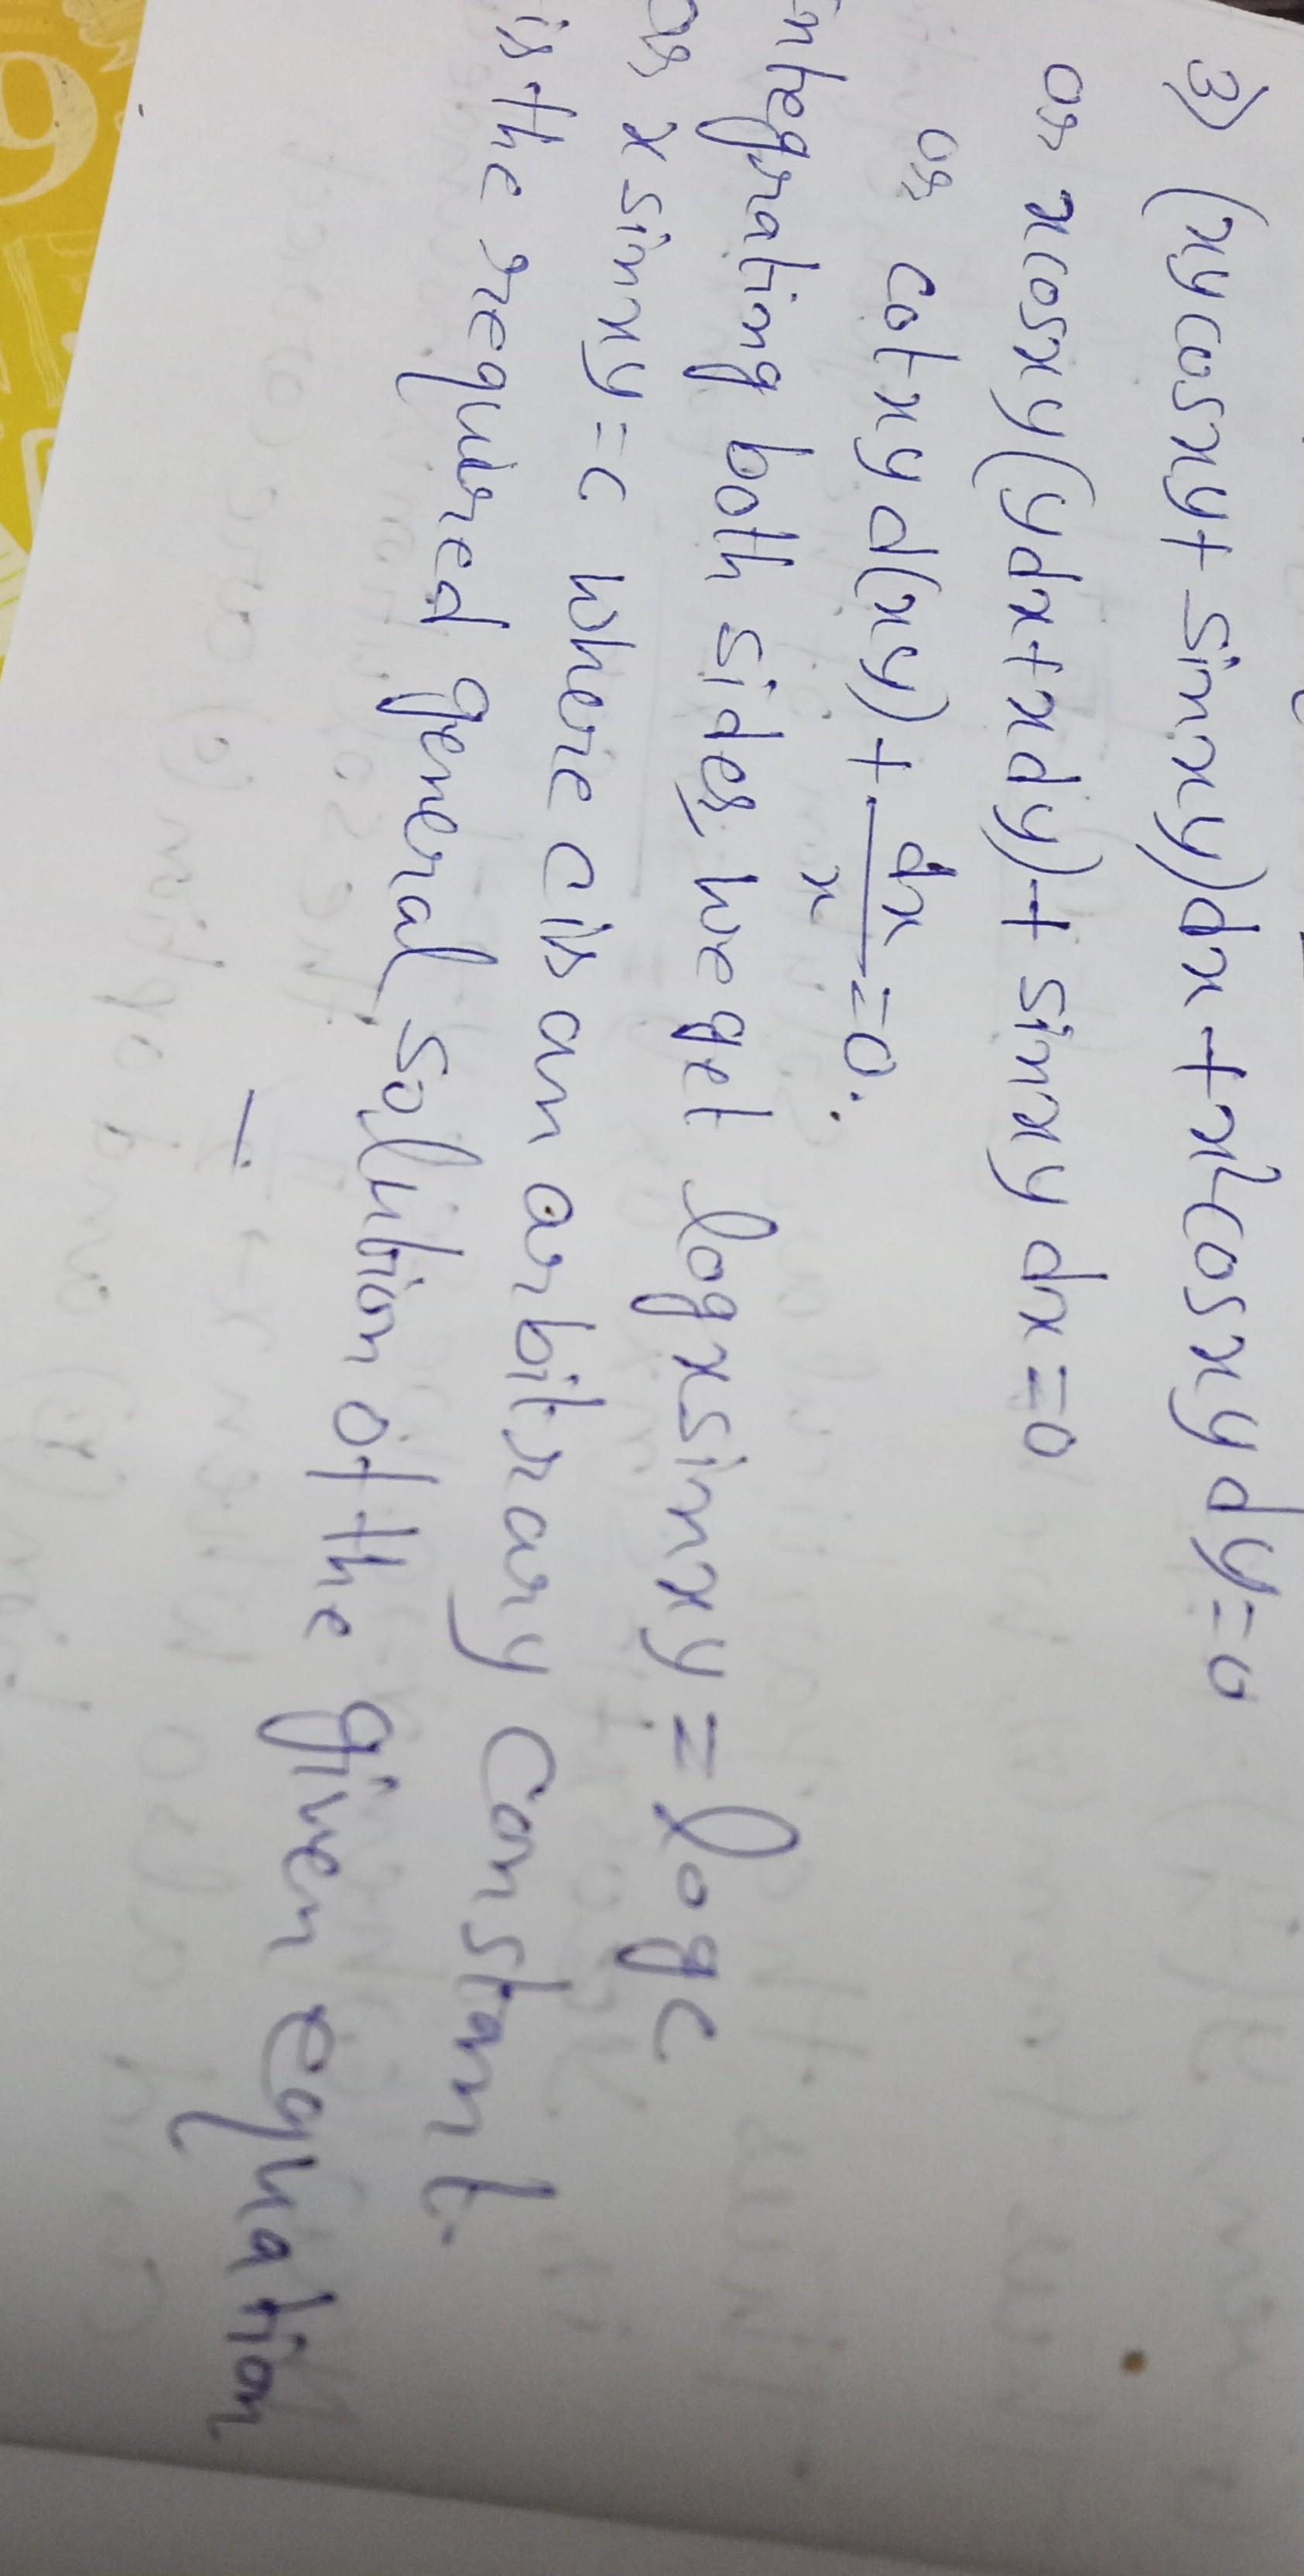 3) (xy cosxy + sinxy)dx + x²cosxy dy = 0
or xcosxy(ydx + xdy) + sinxy dx = 0
or, cot xy d(xy) + dx/x = 0.
Integrating both sides, we get log xsinxy = log c
or, x sinxy = c where c is an arbitrary constant.
is the required general solution of the given equation